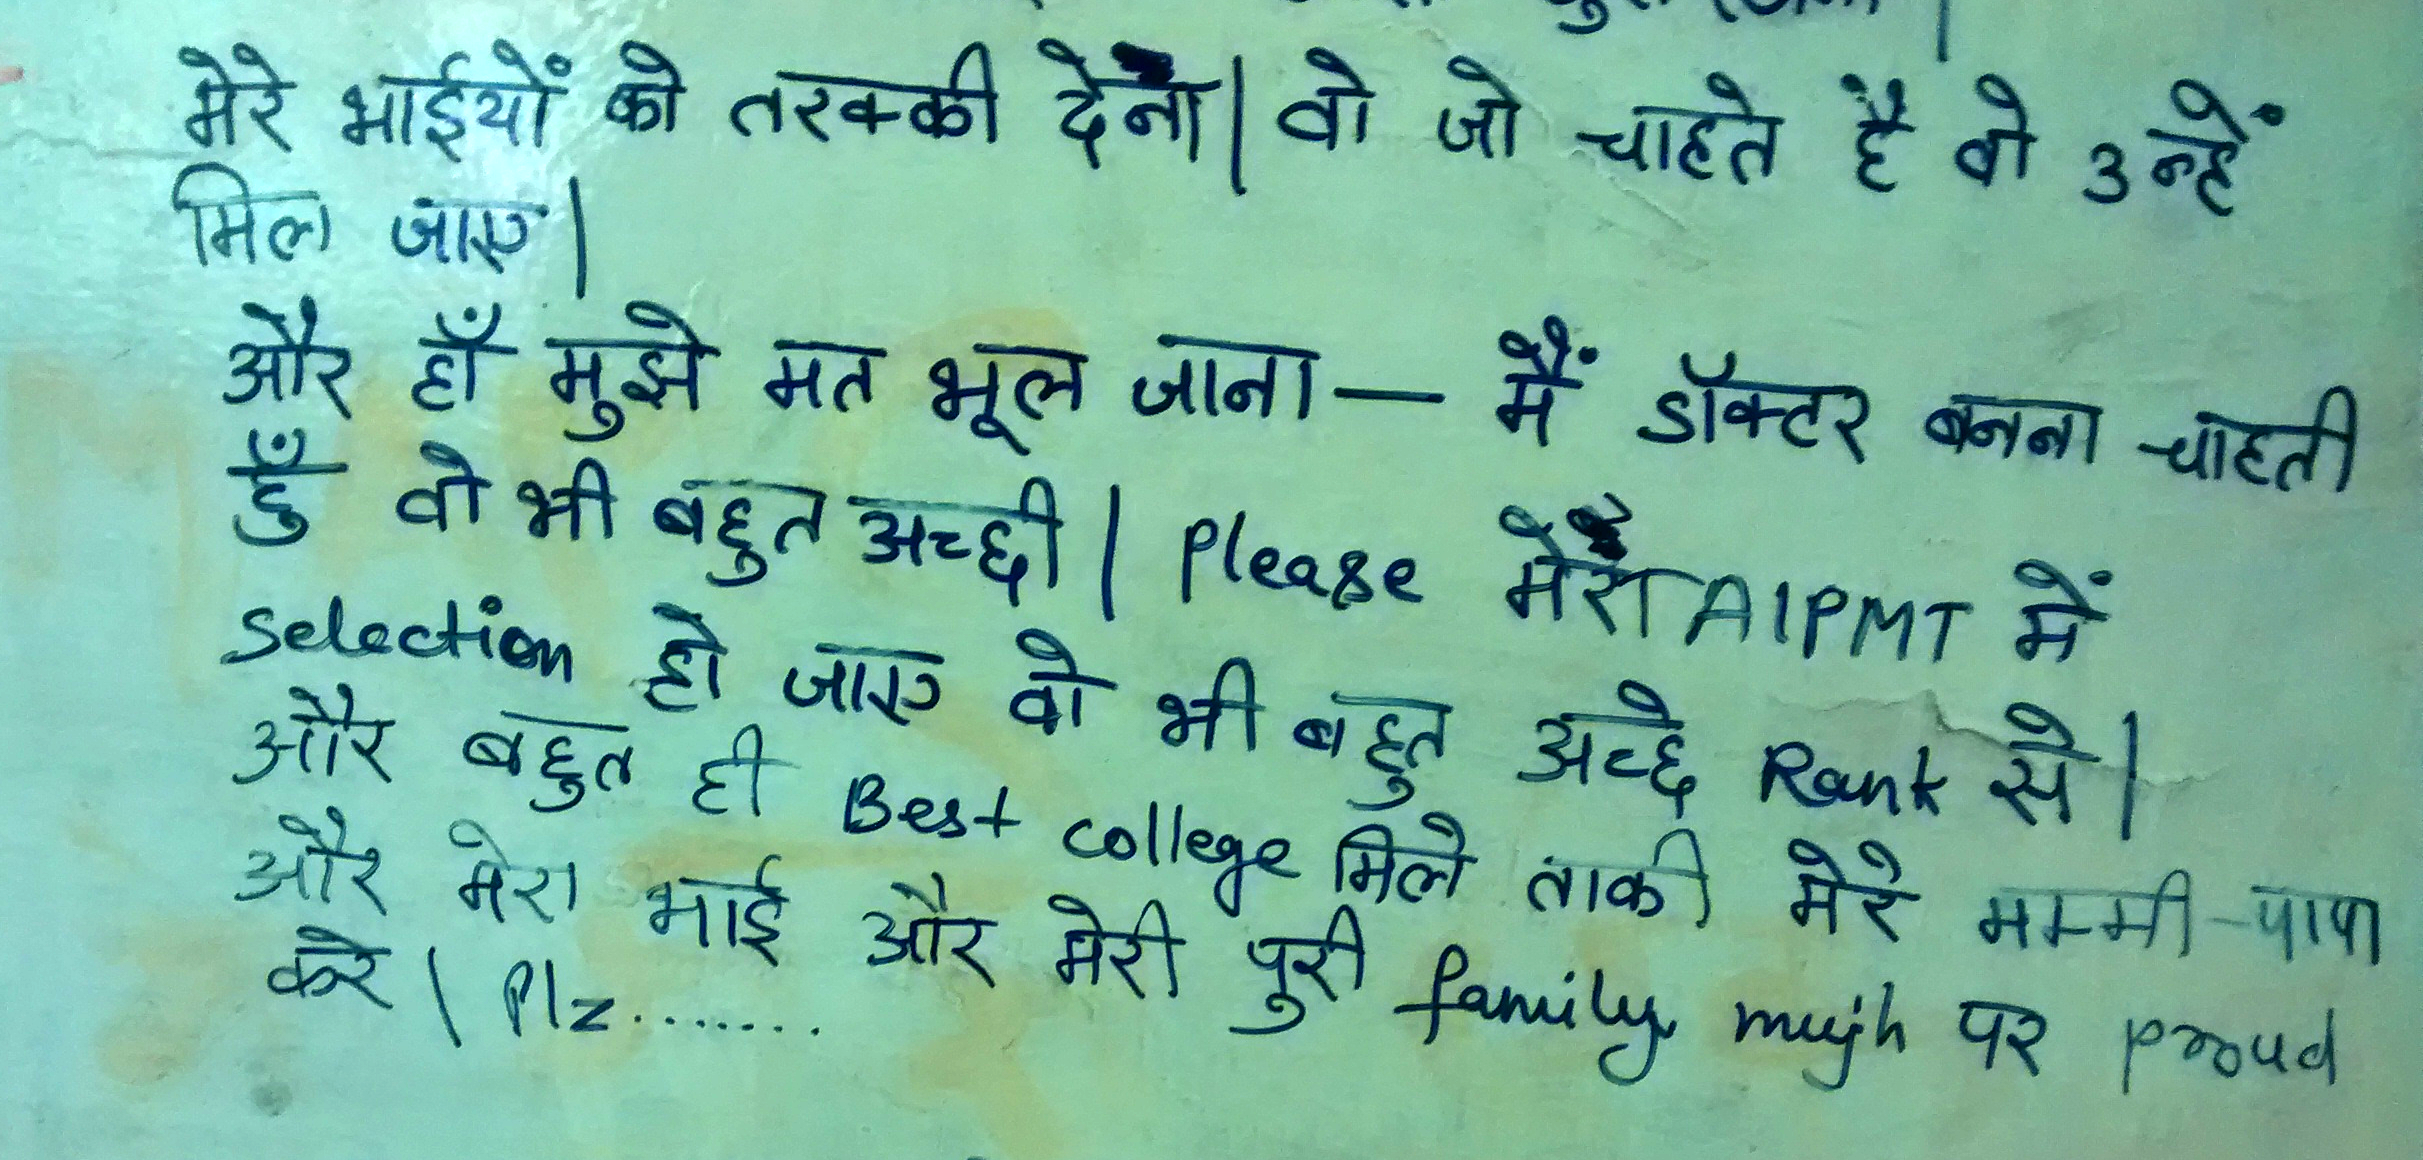 मेरे भाईयों को तरक्की देना। वो जो चाहते है वो उन्हें
मिल जाए।
और हाँ मुझे मत भूल जाना — मैं डॉक्टर बनना चाहती
हुँ वो भी बहुत अच्छी। Please मेरा AIPMT में
Selection हो जाए वो भी बहुत अच्छे Rank से।
और बहुत ही Best college मिले ताकी मेरे मम्मी-पापा
और मेरा भाई और मेरी पुरी family mujh पर proud
करे। Plz........